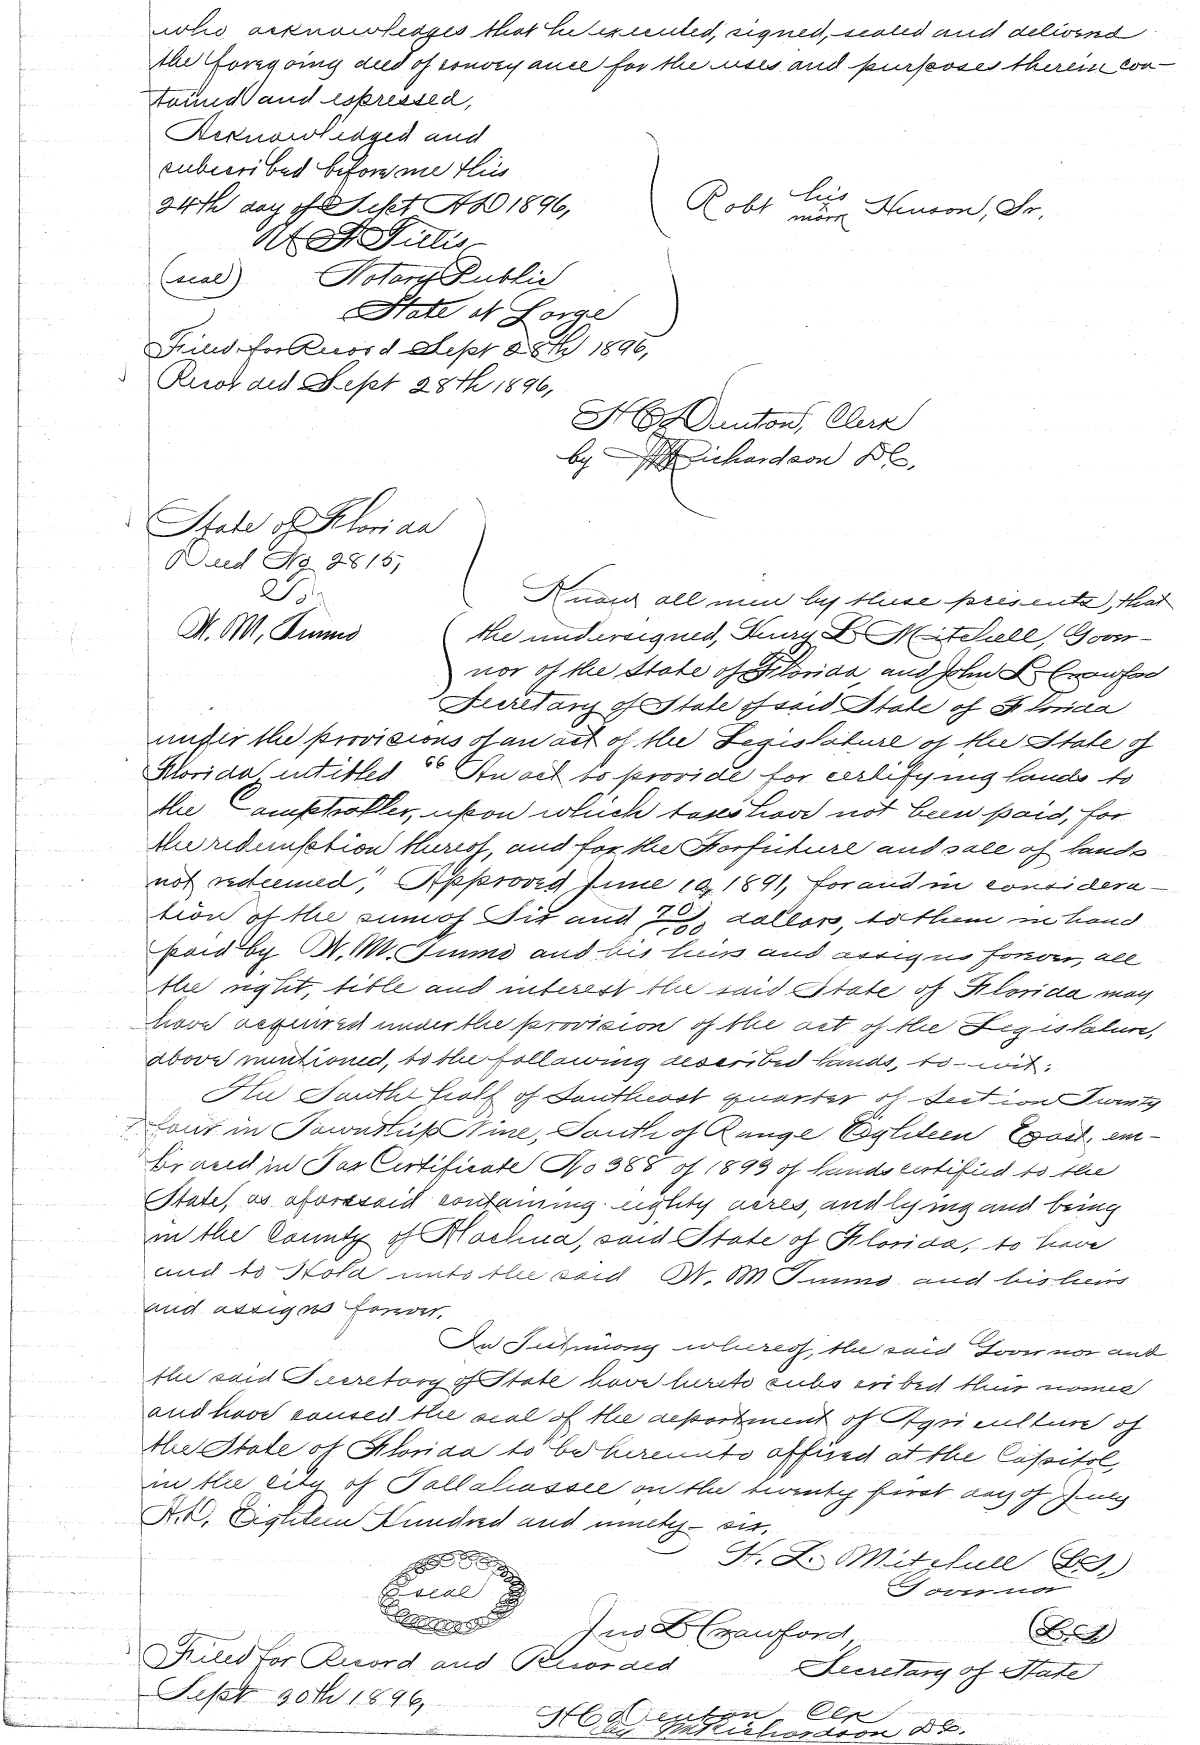 who acknowledges that he executed, signed, sealed and deliverd
the foregoing deed of conveyance for the uses and purposes therein con-
tained and expressed,
Acknowledged and
subscribed before me this
24th day of Sept A.D 1896,
Robt his mark x Henson, Sr.
(seal) Notary Public
State at Large
Filed for Record Sept 28th 1896,
Recorded Sept 28th 1896,
H C Denton, Clerk
by Richardson D.C.
State of Florida
Deed No 2815,
To
W. M, Timms
Know all men by these presents, that
the undersigned, Henry L Mitchell, Gover-
nor of the State of Florida, and John L Crawford
Secretary of State of said State of Florida
under the provisions of an act of the Legislature of the State of
Florida, intitled "An act to provide for certifying lands to
the Comptroller, upon which taxes have not been paid, for
the redemption thereof, and for the Forfeiture and sale of lands
not redeemed," Approved June 10, 1891, for and in considera-
tion of the sum of Six and 70/100 dollars, to them in hand
paid by W. M. Timms and his heirs and assigns forever, all
the right, title and interest the said State of Florida may
have acquired under the provision of the act of the Legislature,
above mentioned, to the following described lands, to-wit:
The South half of Southeast quarter of Section Twenty
four in Township Nine, South of Range Eighteen East, em-
braced in Tax Certificate No 388 of 1893 of lands certified to the
State, as aforesaid containing eighty acres, and lying and being
in the County of Alachua, said State of Florida, to have
and to Hold unto the said W. M Timms and his heirs
and assigns forever.
In Testimony whereof, the said Governor and
the said Secretary of State have hereto subscribed their names
and have caused the seal of the department of Agriculture of
the State of Florida to be hereunto affixed at the Capitol,
in the city of Tallahassee on the twenty first day of July
A.D, Eighteen Hundred and ninety-six,
H. L. Mitchell (L.S.)
Governor
seal
Jno L Crawford, (L.S)
Secretary of State
Filed for Record and Recorded
Sept 30th 1896,
H C Denton Clk
by Richardson D.C.